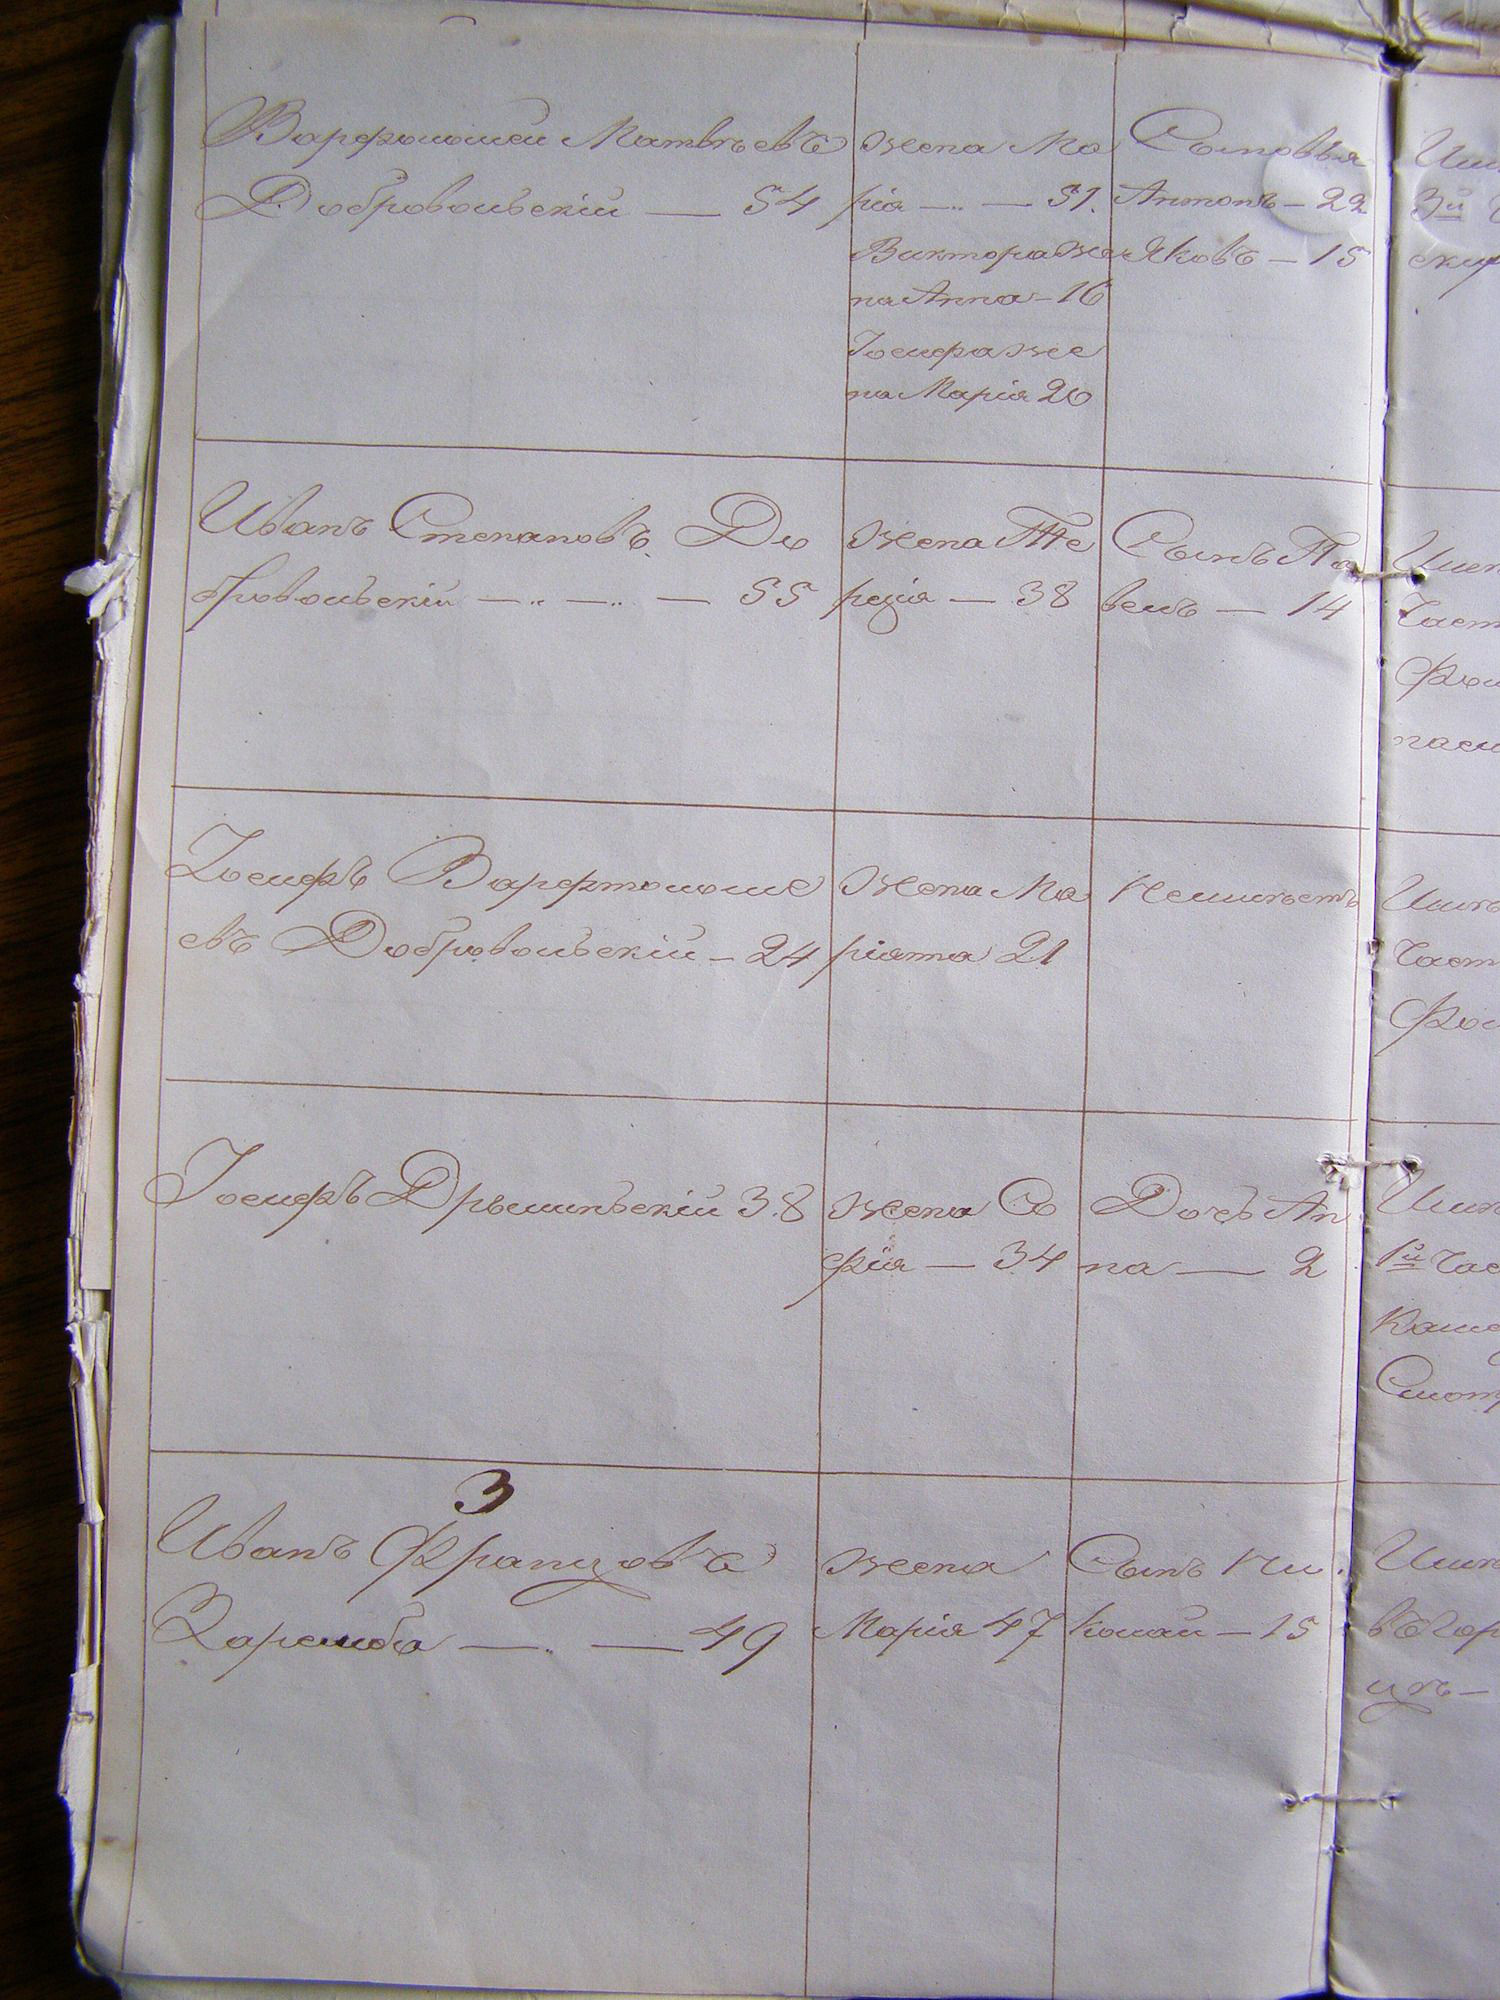 Варфоломей Матвѣевъ
Добровольскій — 54
жена Ма
рія — „ — 51.
Виктора же
на Анна — 16
Іосифа же
на Марія 20
Сыновья
Антонъ — 22
Яковъ — 15
3й
Иванъ Степановъ До
бровольскій — „ — „ — 55
жена Те
резія — 38
Сынъ Па
велъ — 14
Іосифъ Варфтоломе
евъ Добровольскій — 24
жена Ма
ріанна 21
Неимѣетъ
Іосифъ Дрылиньскій 38
жена Со
фія — 34
Дочь Ан
на — 2
1й
3
Иванъ Францовъ
Заремба — „ — 49
жена
Марія 47
Сынъ Ни
колай — 15